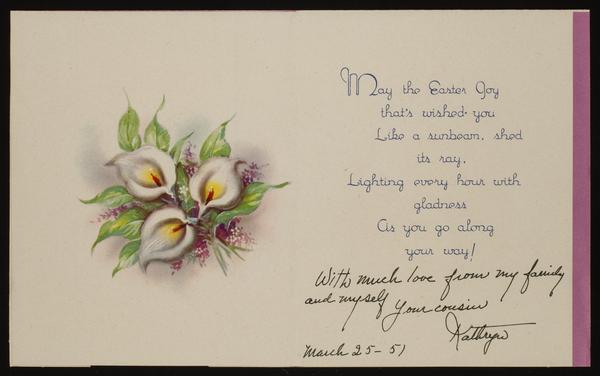 May the Easter Joy
that's wished you
Like a sunbeam, shed
its ray,
Lighting every hour with
gladness
As you go along
your way!
With much love from my family
and myself Your cousin
Kathryn
March 25-51